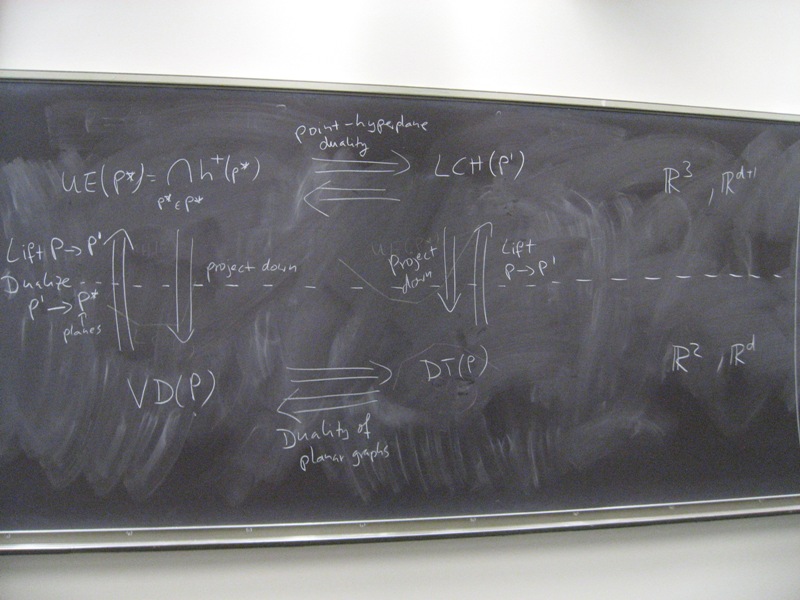 point-hyperplane
duality
UE(P*) = ∩ h⁺(p*)
p* ∈ P*
LCH(P')
ℝ³, ℝᵈ⁺¹
Lift P → P'
Dualize
P' → P*
↑
planes
project down
Project
down
Lift
P → P'
VD(P)
DT(P)
ℝ², ℝᵈ
Duality of
planar graphs